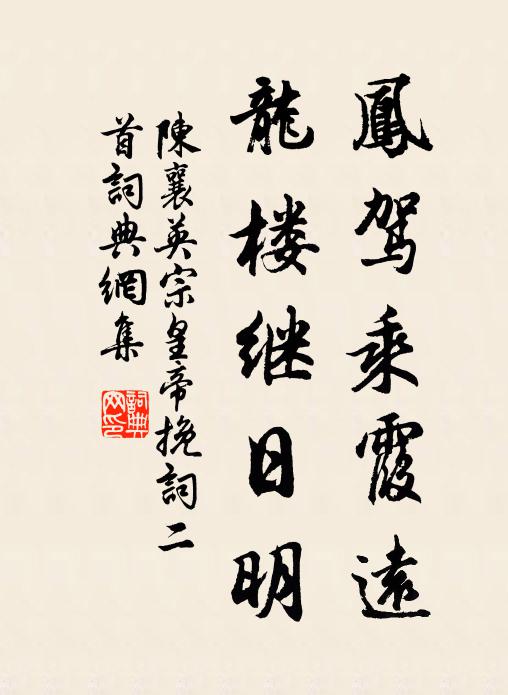 鳳驾乘霞遠
龍楼继日明
陳襄英宗皇帝挽詞二
首詞典網集
詞典
网印